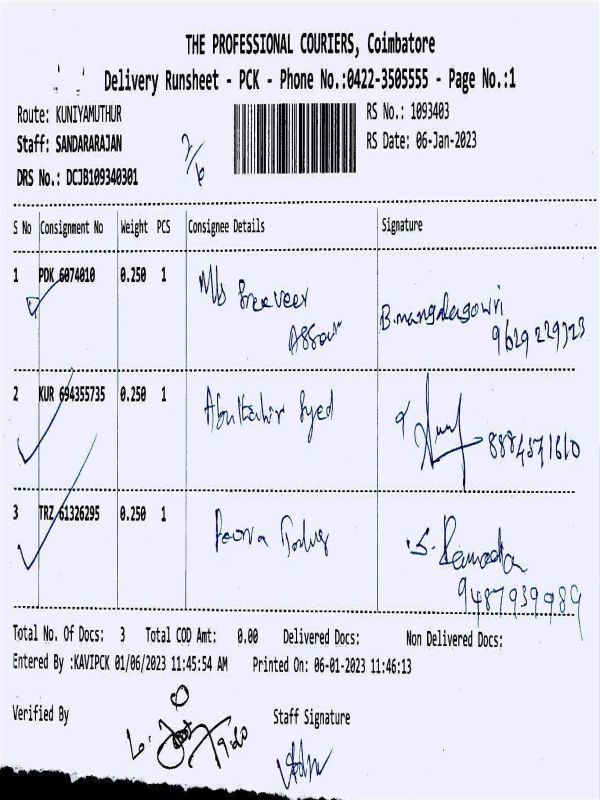 THE PROFESSIONAL COURIERS, Coimbatore
Delivery Runsheet - PCK - Phone No.:0422-3505555 - Page No.:1
Route: KUNIYAMUTHUR RS No.: 1093403
Staff: SANDARARAJAN RS Date: 06-Jan-2023
DRS No.: DCJB109340301
S No Consignment No Weight PCS Consignee Details Signature
1 PDK 6074010 0.250 1 M/s
B.mangalagowri
9629229323
2 KUR 694355735 0.250 1 Syed
8884571610
3 TRZ 61326295 0.250 1
S.
9487939989
Total No. Of Docs: 3 Total COD Amt: 0.00 Delivered Docs: Non Delivered Docs:
Entered By :KAVIPCK 01/06/2023 11:45:54 AM Printed On: 06-01-2023 11:46:13
Verified By Staff Signature